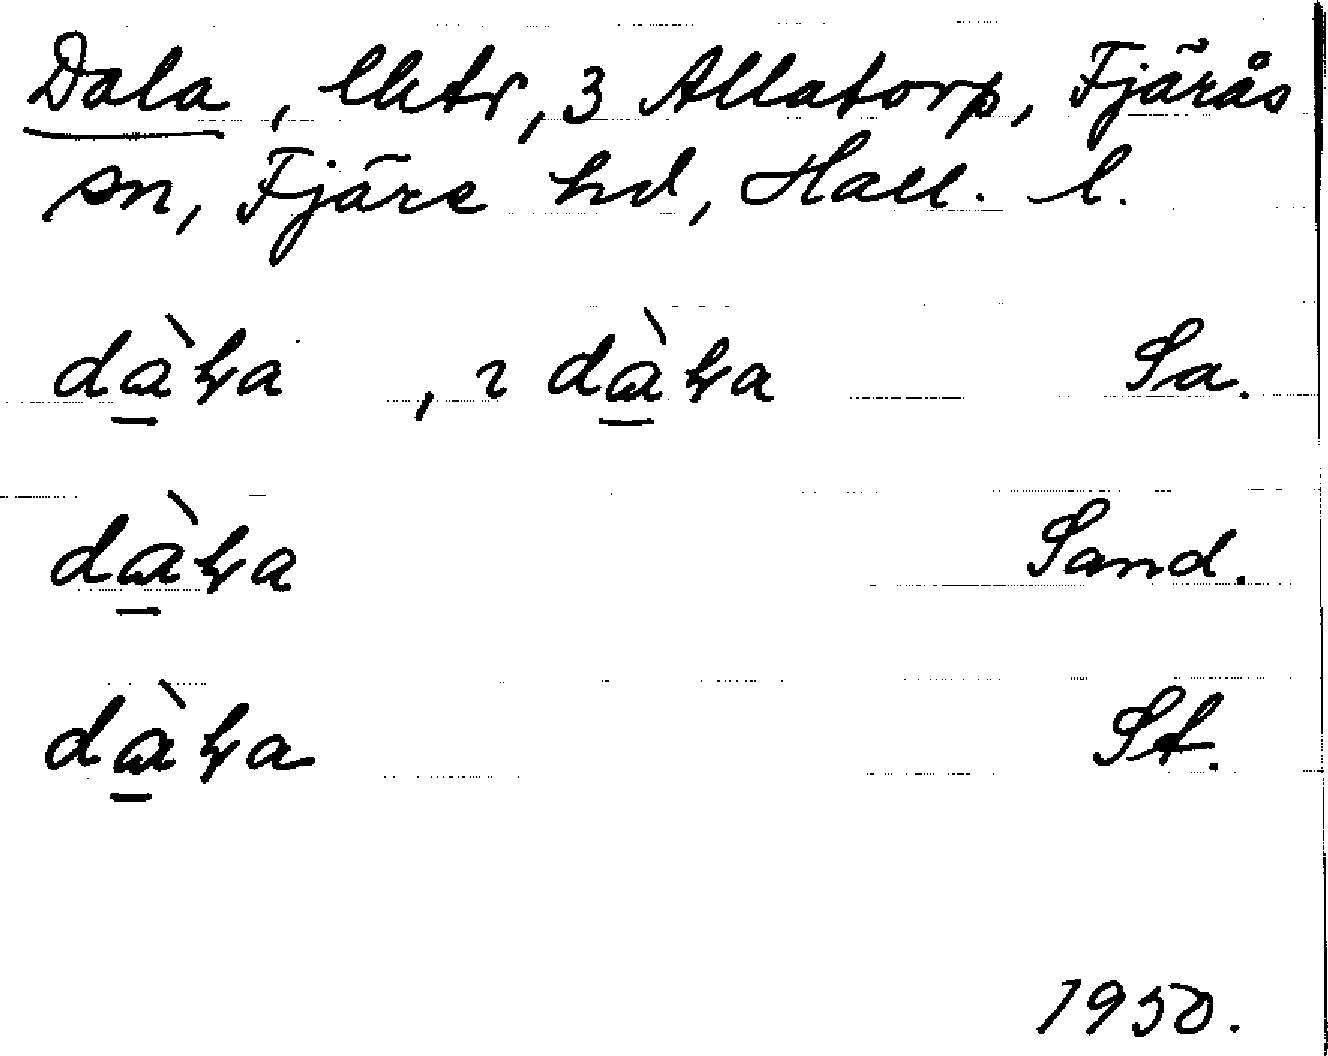 Dala, lhtr, 3 Allatorp, Fjärås
sn, Fjäre hd, Hall. l.
dàɫa, ɩ dàɫa Sa.
dàɫa Sand.
dàɫa St.
1950.